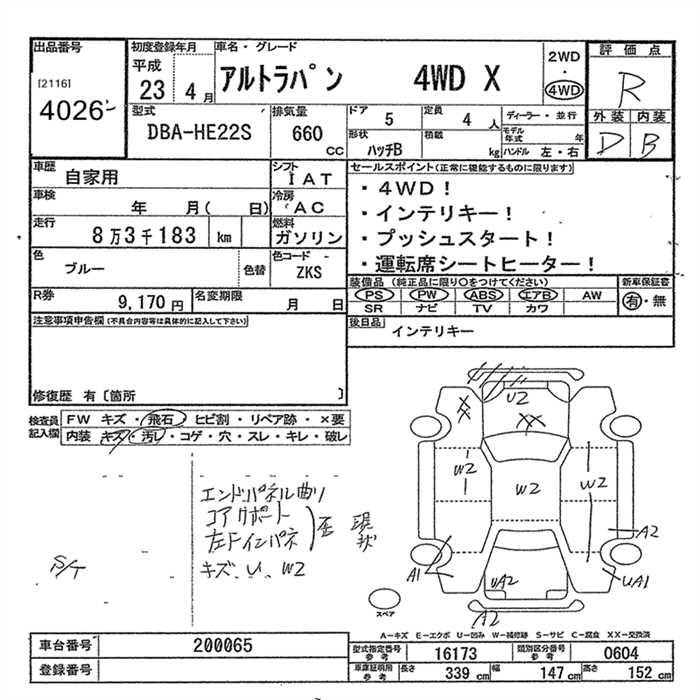 出品番号
[2116]
4026
初度登録年月
平成
23 4月
車名・グレード
アルトラパン 4WD X
2WD
・
4WD
評価点
R
外装 内装
D B
型式
DBA-HE22S
排気量
660 CC
ドア
5
定員
4 人
形状
ハッチB
積載
kg
ディーラー・並行
モデル年式 年
ハンドル 左・右
車歴
自家用
シフト
IAT
車検
年 月( 日)
冷房
AC
走行
8万3千183 km
燃料
ガソリン
色
ブルー
色替
色コード
ZKS
R券
9,170円
名変期限
月 日
セールスポイント(正常に機能するものに限ります)
・4WD!
・インテリキー!
・プッシュスタート!
・運転席シートヒーター!
装備品(純正品に限り○をつけてください)
PS PW ABS エアB AW
SR ナビ TV カワ
新車保証書
有・無
後日品
インテリキー
注意事項申告欄(不具合内容等は具体的に記入して下さい)
修復歴 有〔箇所 〕
検査員記入欄
FW キズ・飛石・ヒビ割・リペア跡・×要
内装 キズ・汚レ・コゲ・穴・スレ・キレ・破レ
エンドパネル曲り
コアサポート
左Fインパネ
歪 現状
キズ、U、W2
S/T
U2
XX
XX
W2
W2
W2
A2
A1
UA2
UA1
A2
スペア
A-キズ E-エクボ U-凹み W-補修跡 S-サビ C-腐食 XX-交換済
車台番号
200065
登録番号
型式指定番号
参考
16173
類別区分番号
参考
0604
車庫証明用
参考
長さ
339 cm
幅
147 cm
高さ
152 cm